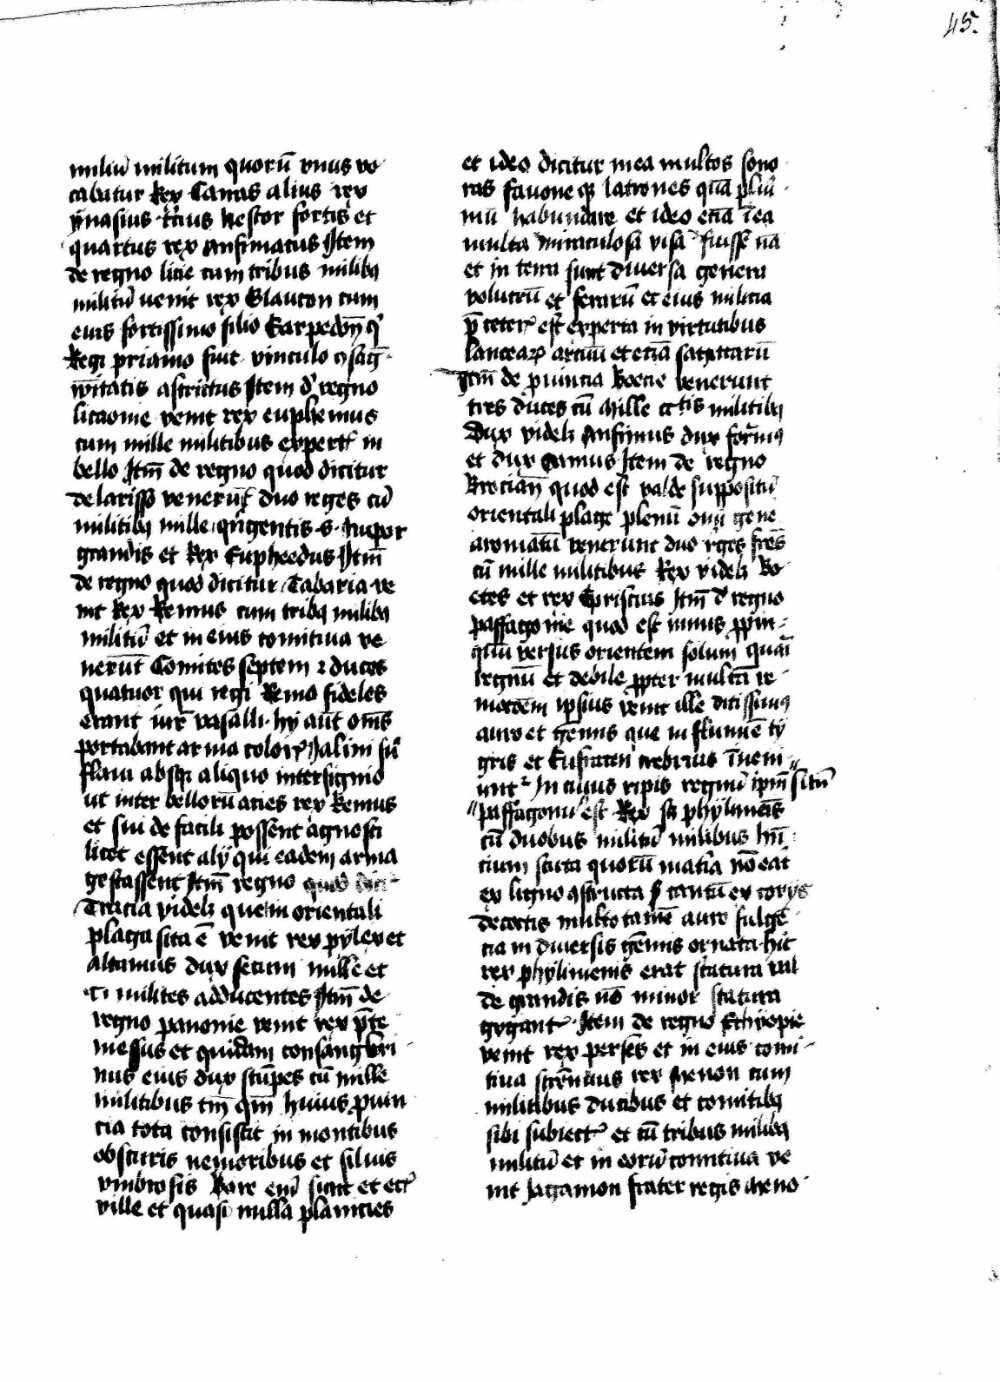 45.
miliū militum quorū vnus vo
cabatur Rex Carras alius rex
ymasius t̄cius Nestor fortis et
quartus rex Ansimatus Item
de regno licie cum tribus milibꝫ
militū uenit rex Glaucon cum
eius fortissimo filio Sarpedōn qͥ
Regi priamo fuit vinculo ꝯsag̅
wītatis astrictus Itē d' regno
licaonie venit rex euphemus
cum mille militibus expertꝭ in
bello Itm̄ de regno quod dicitur
de larisso venerūt duo reges cū
militibꝫ mille qͥngentis .s. hupor
grandis et Rex Eupheedus Itm̄
de regno quod dicitur Tabaria ve
nit Rex Remus cum tribꝫ milibꝫ
militū et in eius comitiua ve
nerūt Comites septem ⁊ duces
quatuor qui regi Remo fideles
erant iur̄ vasalli hy aūt om̄s
portabant arma colorꝭ
flaui absqꝫ aliquo intersignio
ut inter bellorū acies rex Remus
et sui de facili possent agnosci
licet essent alÿ qui eadem arma
gestassent Itm̄ regno quod dici
Tracia videlꝫ que in orientali
plaga sita ē venit rex pylex et
altamus dux secum mille et
Cͥ milites adducentes Itm̄ de
regno panonie venit rex p̄te
messus et quidam consangwi
nus eius dux stūpes cū mille
militibus tm̄ qm̄ huius ꝓuin
cia tota consistit in montibus
obscuris nemoribus et siluis
vmbrosis Rare em̄ sunt et ecꝭ
ville et quasi nulla planicies
et ideo dicitur mea multos sono
ras fauone qꝫ latrones quā pluͥ
mū habundare et ideo eciā ī ea
multa miraculosa visa fuisse nā
et in terra sunt diuersa genera
volucrū et ferarū et eius milicia
p̄ ceterꝭ est experta in virtutibus
lancearꝝ arcuū et eciā sagittarū
Itm̄ de ꝓuincia Boecie venerunt
tres duces cū mille ctis militibꝫ
Dux videlꝫ Ansimus dux forcͥnꝰ
et dux samus Item de regno
Brocian̄ quod est valde suppositū
orientali plage plenū oni gene
aromatū venerunt duo rges fr̄es
cū mille militibus Rex videlꝫ Bo
etes et rex Epristius Itm̄ d' regno
paffagonie quod est minus ꝓpin
quū versus orientem solum quasi
regnū et debile ꝓpter multā re
mocōem ipsius venit ille ditissimꝰ
auro et gemis que in flumīe ty
gris et Eufraten crebrius īueni
untꝛ In cuius ripis regnū ipm̄ sitū
paffagonū est Rex sꝫ phylimenis
cū duobus militū milibus hn̄
cium scuta quorū matīa nō erat
ex ligno ꝯstructa sꝫ tantū ex corÿs
decoctis multo tamē auro fulge
cia in diuersis gēmis ornata hic
rex phylimenis erat statura val
de grandis nō minor statura
gygantꝭ Item de regno Ethyopie
venit rex perses et in eius comi
tiua strēnuus rex Menon cum
militibus ducibus et comitibꝫ
sibi subiectꝭ et cū tribus milibꝫ
militū et in eorū comitiua ve
nit Jagamon frater regis Meno